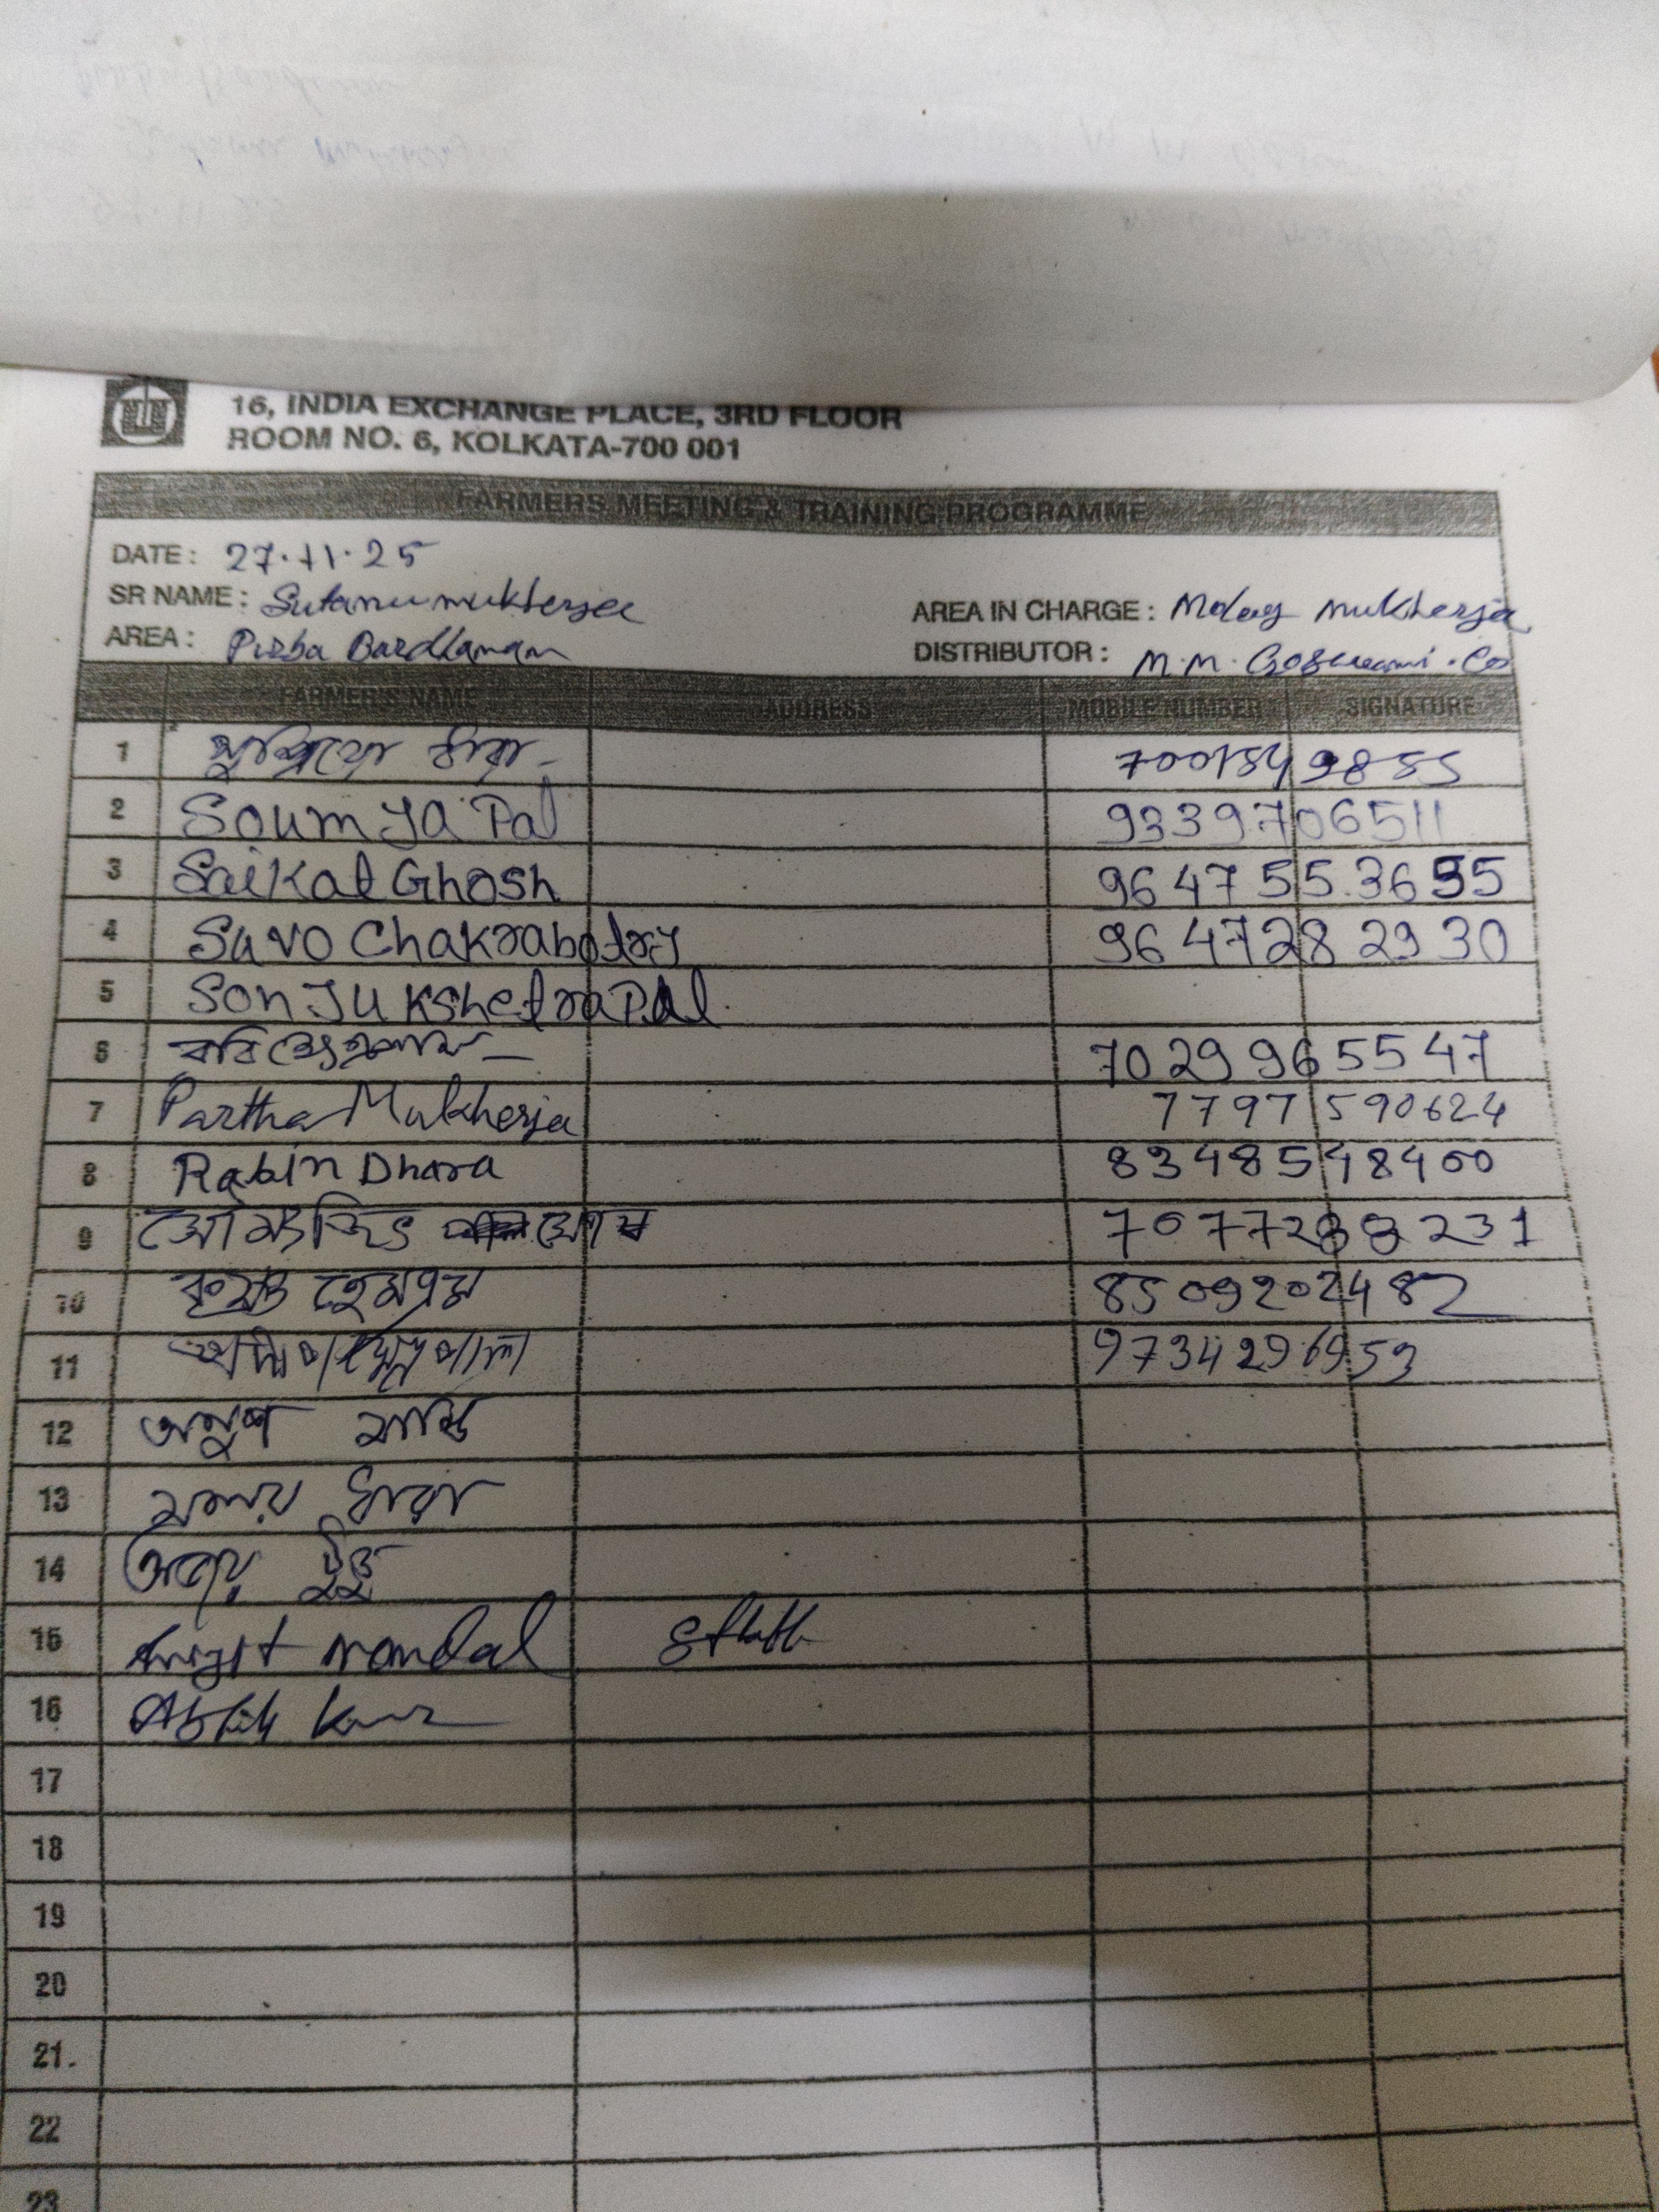 16, INDIA EXCHANGE PLACE, 3RD FLOOR
ROOM NO. 6, KOLKATA-700 001
FARMERS MEETING & TRAINING PROGRAMME
DATE : 27.11.25
SR NAME : Sutanu mukherjee AREA IN CHARGE : Moloy Mukherjee
AREA : Purba Bardhaman DISTRIBUTOR : M.M. Goswami . Co
FARMER'S NAME ADDRESS MOBILE NUMBER SIGNATURE
1 ধারা
2 Soumya Pal 9339706511
3 Saikat Ghosh 9647553655
4 Suvo Chakrabotry 9647282930
5 Sonju kshetraPal
6 রবি 7029965547
7 Partha Mukherjee 7797590624
8 Rabin Dhara 8348548400
9 সোমজিৎ ঘোষ
10 হেমব্রম 8509202482
11 9734296953
12 অনুপ মান্ডি
13 মলয় ধারা
14 অজয় টুডু
15 mondal
16
17
18
19
20
21.
22
23